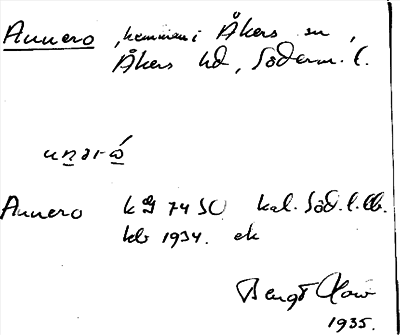 Annero, hemman i Åkers sn,
Åkers hd, Söderm. l.
Annero k 74 SO kal. Söd. l.
kb 1934. ek
Bengt
1935.